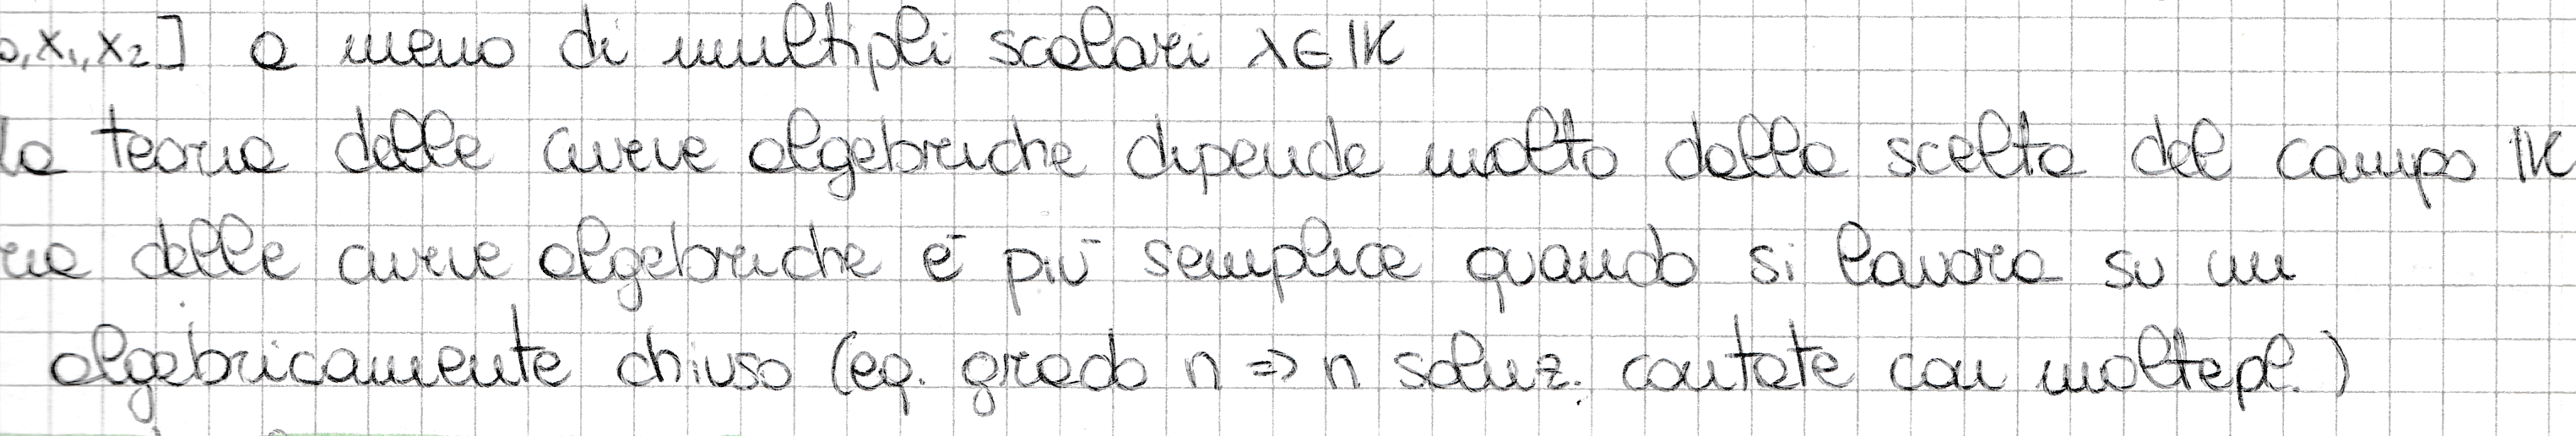 0,x₁,x₂] a meno di multipli scalari λ∈𝕂
la teoria delle curve algebriche dipende molto dalla scelta del campo 𝕂
ria delle curve algebriche è più semplice quando si lavora su un
algebricamente chiuso (eq. grado n => n soluz. contate con moltepl.)